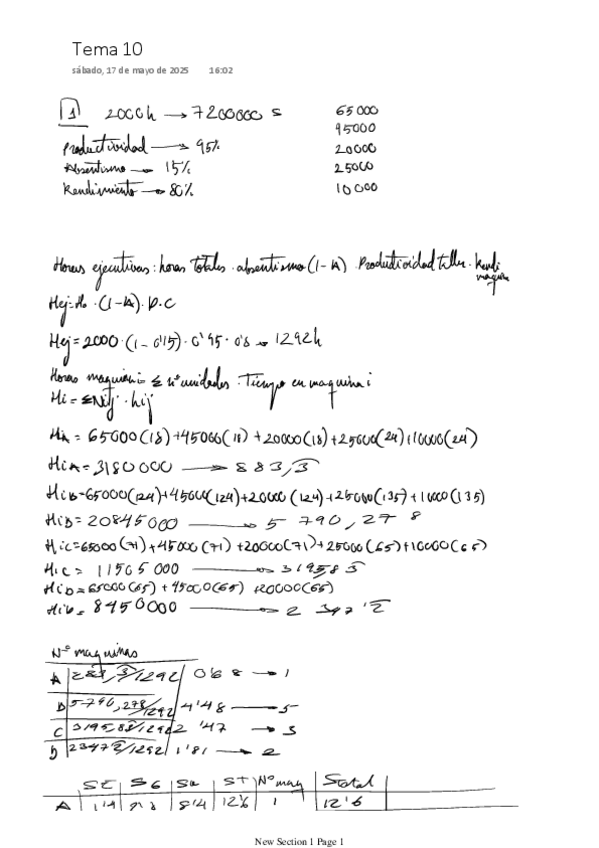 Tema 10
sábado, 17 de mayo de 2025 16:02
1 2000h → 7200000 s 65000
Productividad → 95% 45000
Absentismo → 15% 20000
Rendimiento → 80% 25000
10000
Horas ejecutivas: horas totales · absentismo (1-A) · Productividad taller · Rendi maquina
Hej = Ho · (1-A) · P · C
Hej = 2000 · (1-0'15) · 0'95 · 0'8 → 1292h
Horas maquina i = Σ nº unidades · Tiempo en maquina i
Hi = ΣNij · hij
HiA = 65000(18)+45000(18)+20000(18)+25000(24)+10000(24)
HiA = 3180000 → 883,3
HiB = 65000(124)+45000(124)+20000(124)+25000(135)+10000(135)
HiB = 20845000 → 5790,278
HiC = 65000(71)+45000(71)+20000(71)+25000(65)+10000(65)
HiC = 11505000 → 319583
HiD = 65000(65)+45000(65)+20000(65)
HiD = 8450000 → 2347'2
Nº maquinas
A 883,3/1292 0'68 → 1
B 5790,278/1292 4'48 → 5
C 3195,83/1292 2'47 → 3
D 2347'2/1292 1'81 → 2
SE SG Sa ST Nº maq Stotal
A 8'4 12'6 1 12'6
New Section 1 Page 1